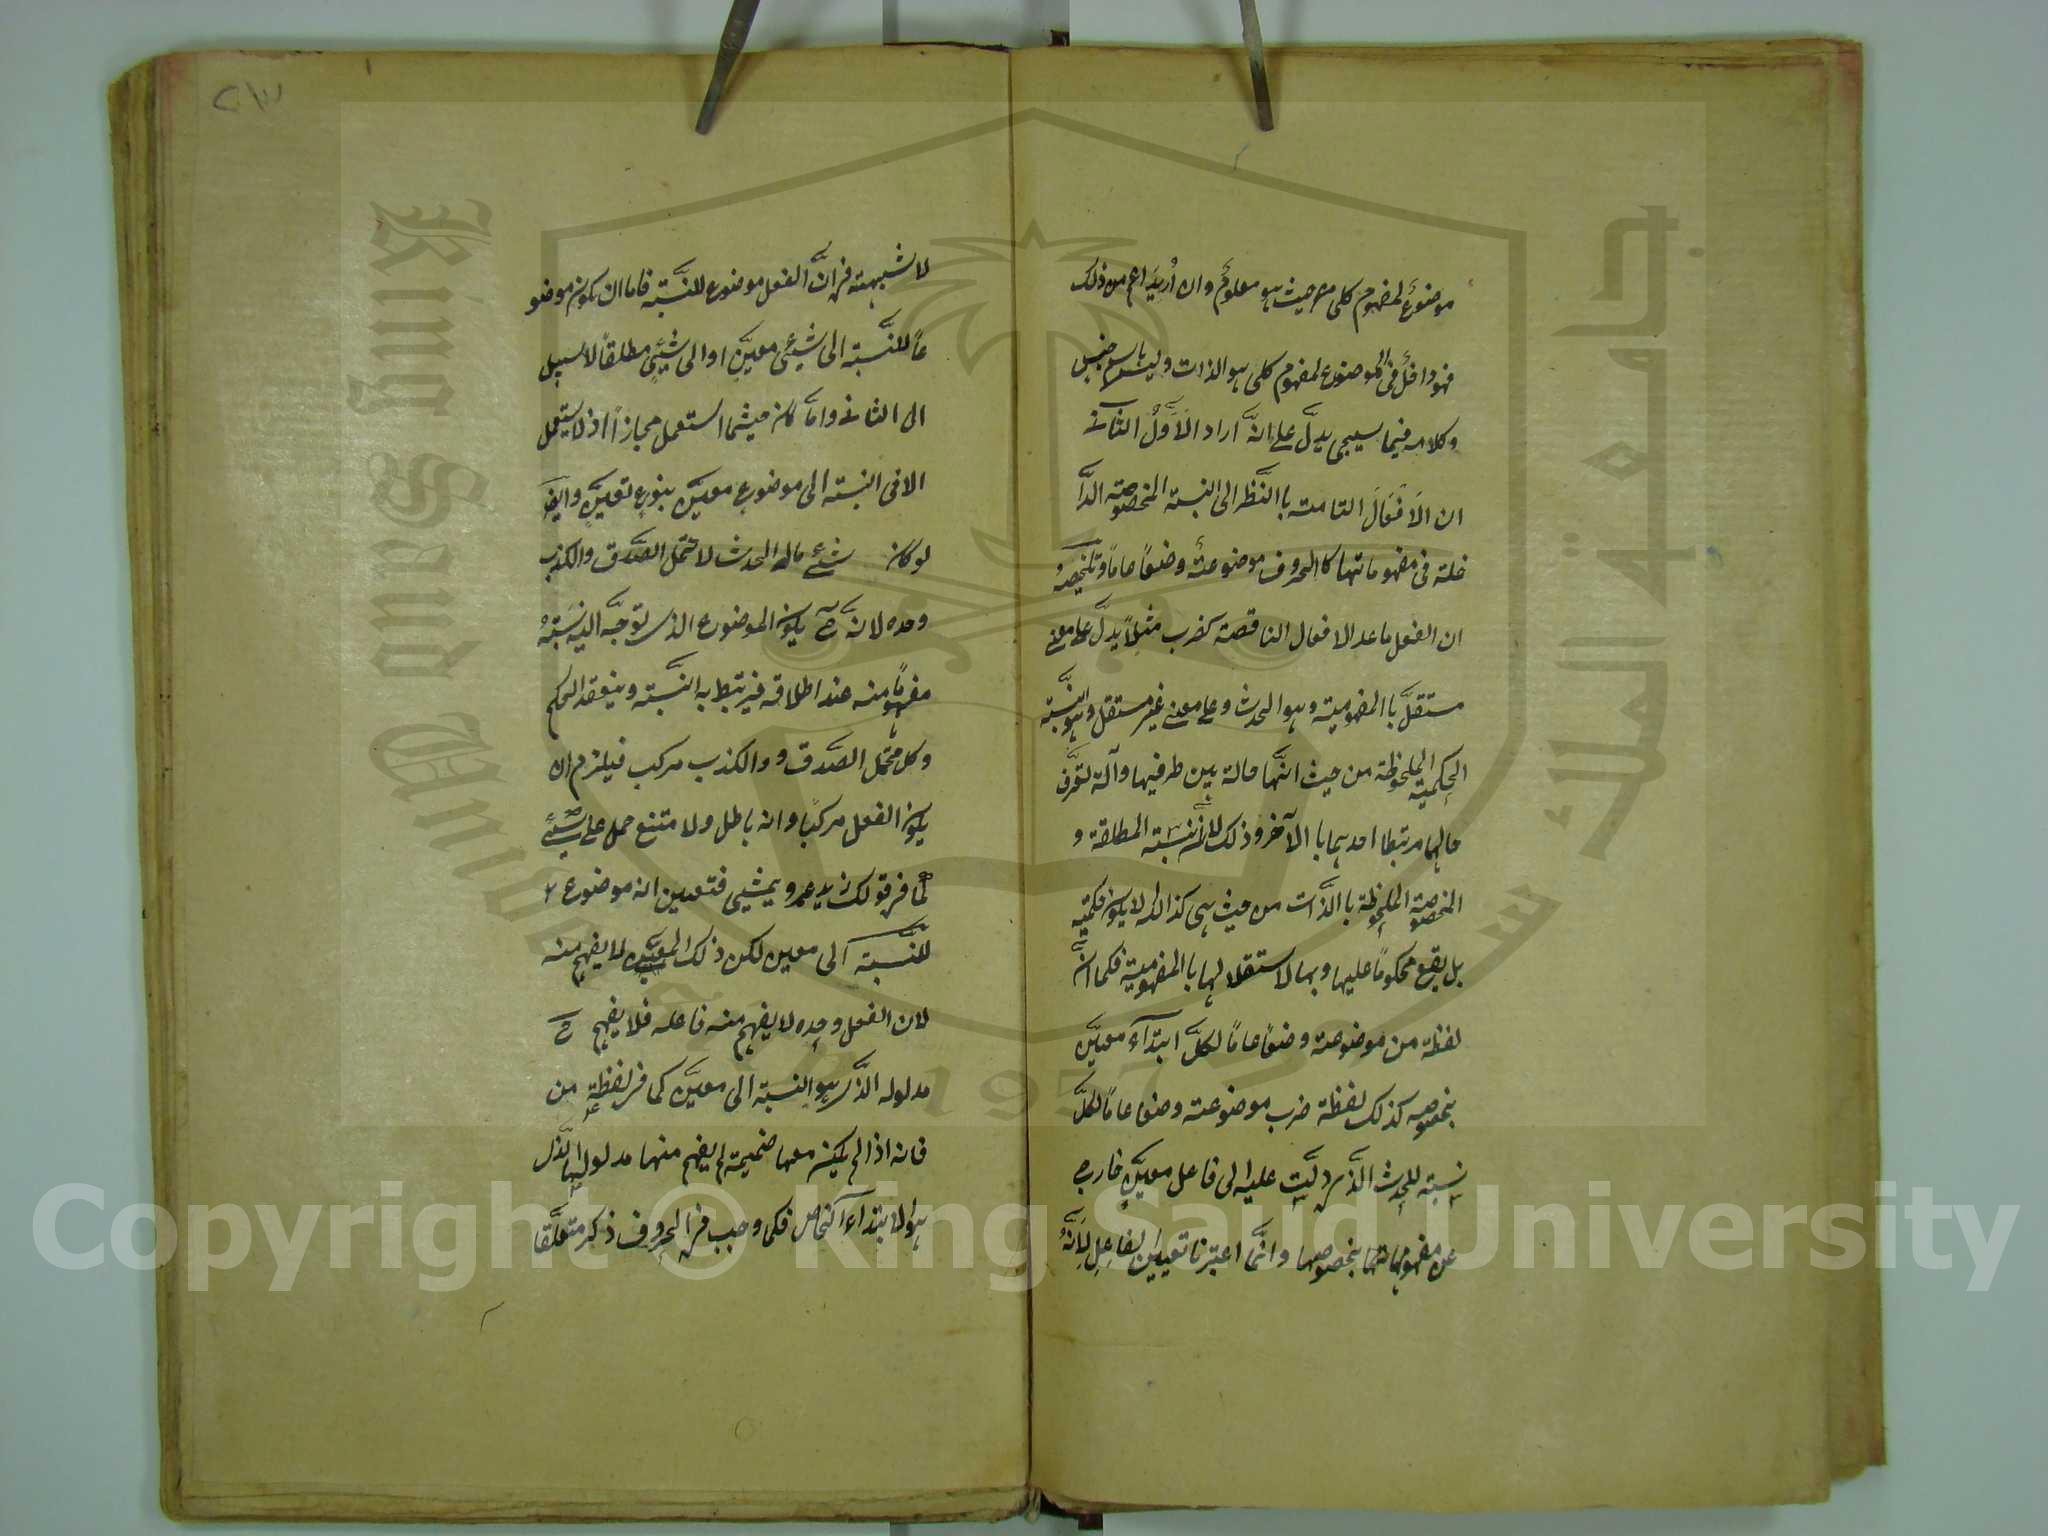 موضوع لمفهوم كلي من حيث هو معلوم وان أريد اعم من ذلك
فهو داخل في الموضوع لمفهوم كلي هو الذات وليس باسم جنس
وكلامه فيما سيجي يدلّ على انّه اراد الاوّل الثاني
ان الافعال التامته باالنّظر الى النسبته المخصوصته الدّا
خلته في مفهوماتها كالحروف موضوعته وضعاً عاماً وتلخيصه
ان الفعل ما عدا الافعال الناقصته كضرب مثلاً يدلّ على معنى
مستقلّ باالمفهوميته وهو الحدث وعلى معنى غير مستقل وهو النّسبته
الحكميته الملحوظته من حيث انّها حالته بين طرفيها وآلته لتعرّف
حالهما مرتبطا احدهما باالآخر وذلك لانّ نسبته المطلقته و
المخصوصته الملحوظته باالذّات من حيث هي كذالك لا يكون حكميته
بل يقع محكوماً عليها وبها لاستقلالها باالمفهوميته فكما انّ
لفظته من موضوعته وضعاً عاماً لكلّ ابتدآء معيّن
بخصوصه كذلك لفظته ضرب موضوعته وضعا عاماً لكلّ
نسبته للحدث الّذي دلّت عليه الى فاعل معيّن خارج
عن مفهوماتها بخصوصها وانّما اعتبرنا تعيين الفاعل لانّه
٢١٣
لا شبهته في انّ الفعل موضوع للنّسبته فاما ان يكون موضو
عاً للنّسبته الى شيئي معيّن او الى شيئي مطلقاً لا سبيل
الى الثاني وامّا كان حيثما استعمل مجازاً اذ لا يستعمل
الا في النسبته الى موضوع معيّن بنوع تعيّن وايضا
لو كان شيئ ماله الحدث لاحتمل الصّدق والكذب
وحده لانّه ح يكون الموضوع الذي توجّه اليه نسبته
مفهوماً منه عند اطلاقه فيرتبط به النّسبته وينعقد الحكم
وكل محتمل الصّدق و والكذب مركب فيلزم ان
يكون الفعل مركباً وانه باطل ولامتنع حمل على شيئ
كما في قولك زيد عمرو يمشي فتعين انه موضوع
للنسبته الى معين لكن ذلك المعيّن لا يفهم منه
لان الفعل وحده لا يفهم منه فاعله فلا يفهم ح
مدلوله الّذي هو النسبته الى معيّن كما في لفظته من
فانه اذا لم يكن معها ضميمته لم يفهم منها مدلولها الّذي
هو الابتدآء الخاص فكما وجب في الحروف ذكر متعلّقا
Copyright © King Saud University
King Saud University
جامعة الملك سعود
1957